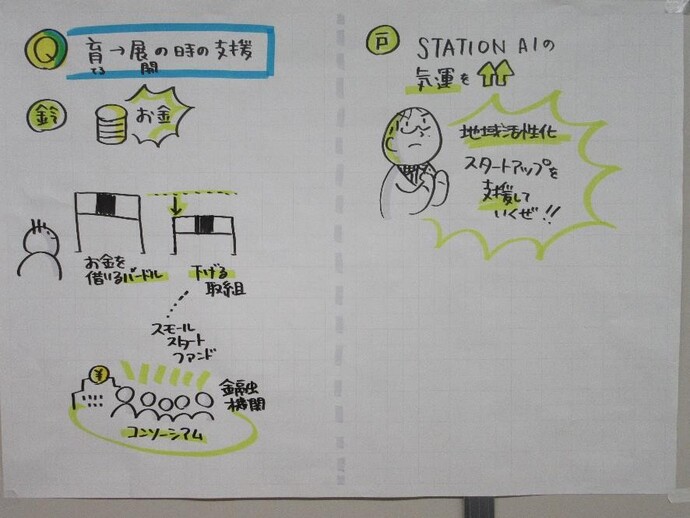 Q 育→展の時の支援
てる 開
鈴 お金
お金を
借いるハードル
下げる
取組
スモール
スタート
ファンド
¥
金融
機関
コンソーシアム
戸 STATION AIの
気運を
地域活性化
スタートアップを
支援して
いくぜ!!